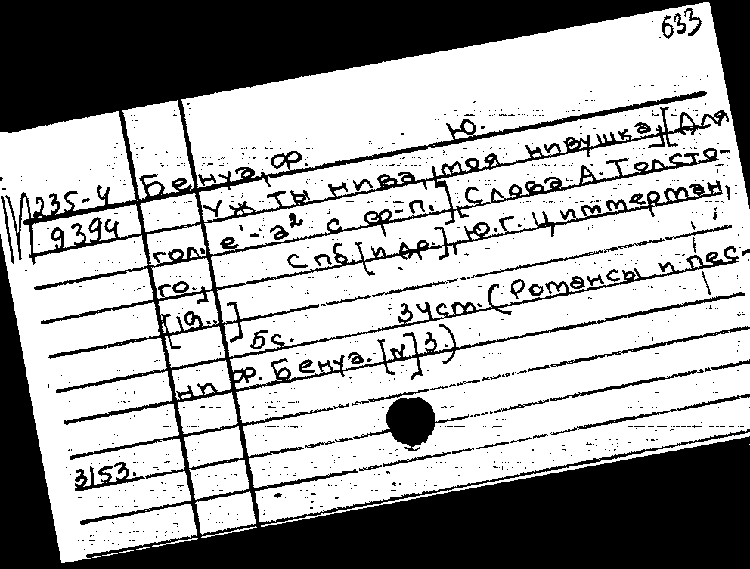 633
Бенуа, Ф. Ю.
М 235-4
9394
Уж ты нива, моя нивушка, [Для
гол. e¹-a² с ф-п.], Слова А. Толсто-
го., Спб. [и др.], Ю.Г. Циммерман,
[19...]
5с. 34см. (Романсы и пес-
ни Ф. Бенуа. [N] 3.)
3153.